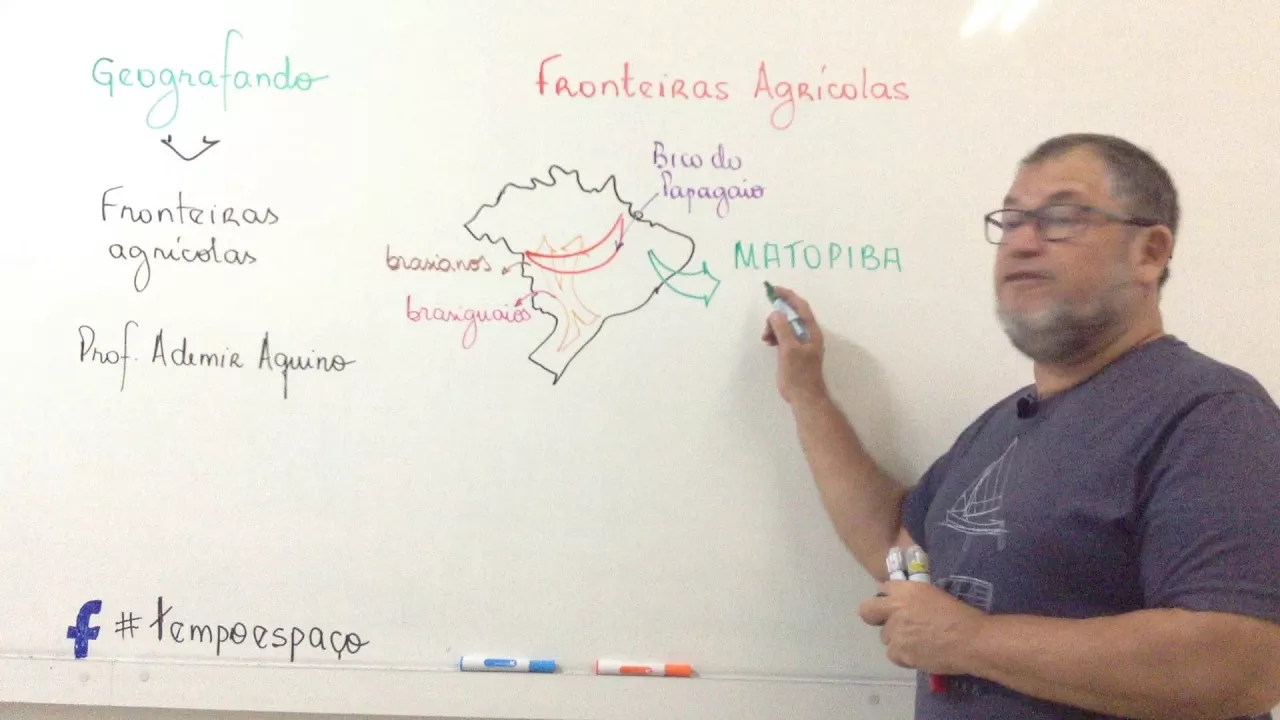 Geografando
Fronteiras
agrícolas
Prof. Ademir Aquino
Fronteiras Agrícolas
Bico do
Papagaio
brasianos
brasiguaios
MATOPIBA
f #tempoespaço